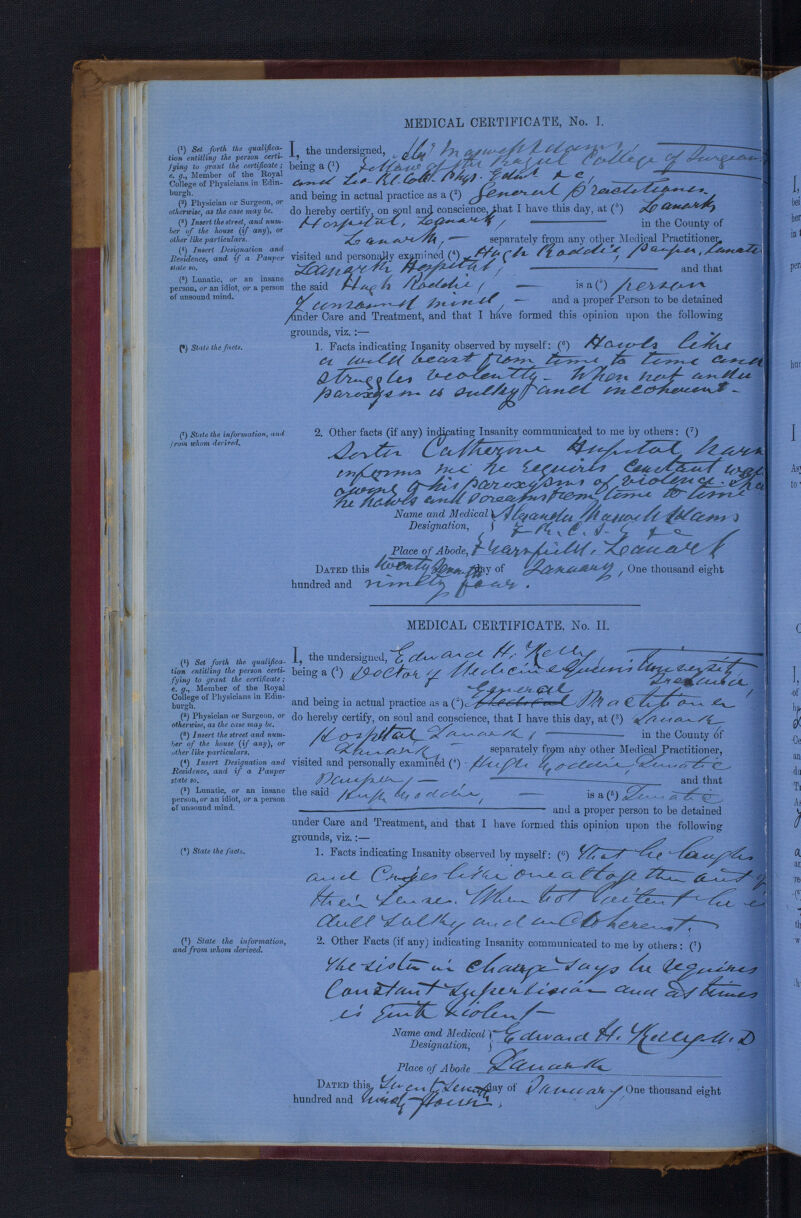 MEDICAL CERTIFICATE, No. I.
(¹) Set forth the qualifica-
tion entitling the person certi-
fying to grant the certificate;
e. g., Member of the Royal
College of Physicians in Edin-
burgh.
(²) Physician or Surgeon, or
otherwise, as the case may be.
(³) Insert the street, and num-
ber of the house (if any), or
other like particulars.
(⁴) Insert Designation and
Residence, and if a Pauper
state so.
(⁵) Lunatic, or an insane
person, or an idiot, or a person
of unsound mind.
(⁶) State the facts.
(⁷) State the information, and
from whom derived.
I, the undersigned, Alexr Maxwell Adams
being a (¹) Fellow of the Royal College of Surgeons
and Lic. Rl. Coll. Phys. Edinr &c,
and being in actual practice as a (²) General Practitioner
do hereby certify, on soul and conscience, that I have this day, at (³) Lanark
Hospital, Lanark, in the County of
Lanark, — separately from any other Medical Practitioner,
visited and personally examined (⁴) Hugh Roddie, Pauper, Lunatic
Lanark Hospital, and that
the said Hugh Roddie, — is a (⁵) person
of unsound mind, — and a proper Person to be detained
under Care and Treatment, and that I have formed this opinion upon the following
grounds, viz. :—
1. Facts indicating Insanity observed by myself: (⁶) Howls like
a wild beast from time to time and
struggles violently – When not under
paroxysm is sulky and incoherent –
2. Other facts (if any) indicating Insanity communicated to me by others: (⁷)
Sister Catherine Hospital
informs me he requires constant
owing to his paroxysms of violence.
he howls and screams from time to time
Name and Medical Designation, Alexander Maxwell Adams
F. R. C. S. E &c
Place of Abode, Lanark
DATED this twenty day of January, One thousand eight
hundred and ninety four.
MEDICAL CERTIFICATE, No. II.
(¹) Set forth the qualifica-
tion entitling the person certi-
fying to grant the certificate;
e. g., Member of the Royal
College of Physicians in Edin-
burgh.
(²) Physician or Surgeon, or
otherwise, as the case may be.
(³) Insert the street and num-
ber of the house (if any), or
other like particulars.
(⁴) Insert Designation and
Residence, and if a Pauper
state so.
(⁵) Lunatic, or an insane
person, or an idiot, or a person
of unsound mind.
(⁶) State the facts.
(⁷) State the information,
and from whom derived.
I, the undersigned, Edward H. Kelly
being a (¹) Doctor of Medicine Queens University
Ireland,
General
and being in actual practice as a (²) Medical Practitioner
do hereby certify, on soul and conscience, that I have this day, at (³) Lanark
Hospital Lanark, in the County of
Lanark — separately from any other Medical Practitioner,
visited and personally examined (⁴) Hugh Roddie, Lunatic
Pauper, — and that
the said Hugh Roddie, — is a (⁵) Lunatic
and a proper person to be detained
under Care and Treatment, and that I have formed this opinion upon the following
grounds, viz. :—
1. Facts indicating Insanity observed by myself: (⁶) That he laughs
and Cries like one altogether out of
their senses. When not he is
dull sulky and incoherent.
2. Other Facts (if any) indicating Insanity communicated to me by others: (⁷)
The sister in charge says he requires
Constant supervision and at times
is quite violent –
Name and Medical Designation, Edward H. Kelly M. D
Place of Abode Lanark
DATED this, day of January One thousand eight
hundred and ninety four,